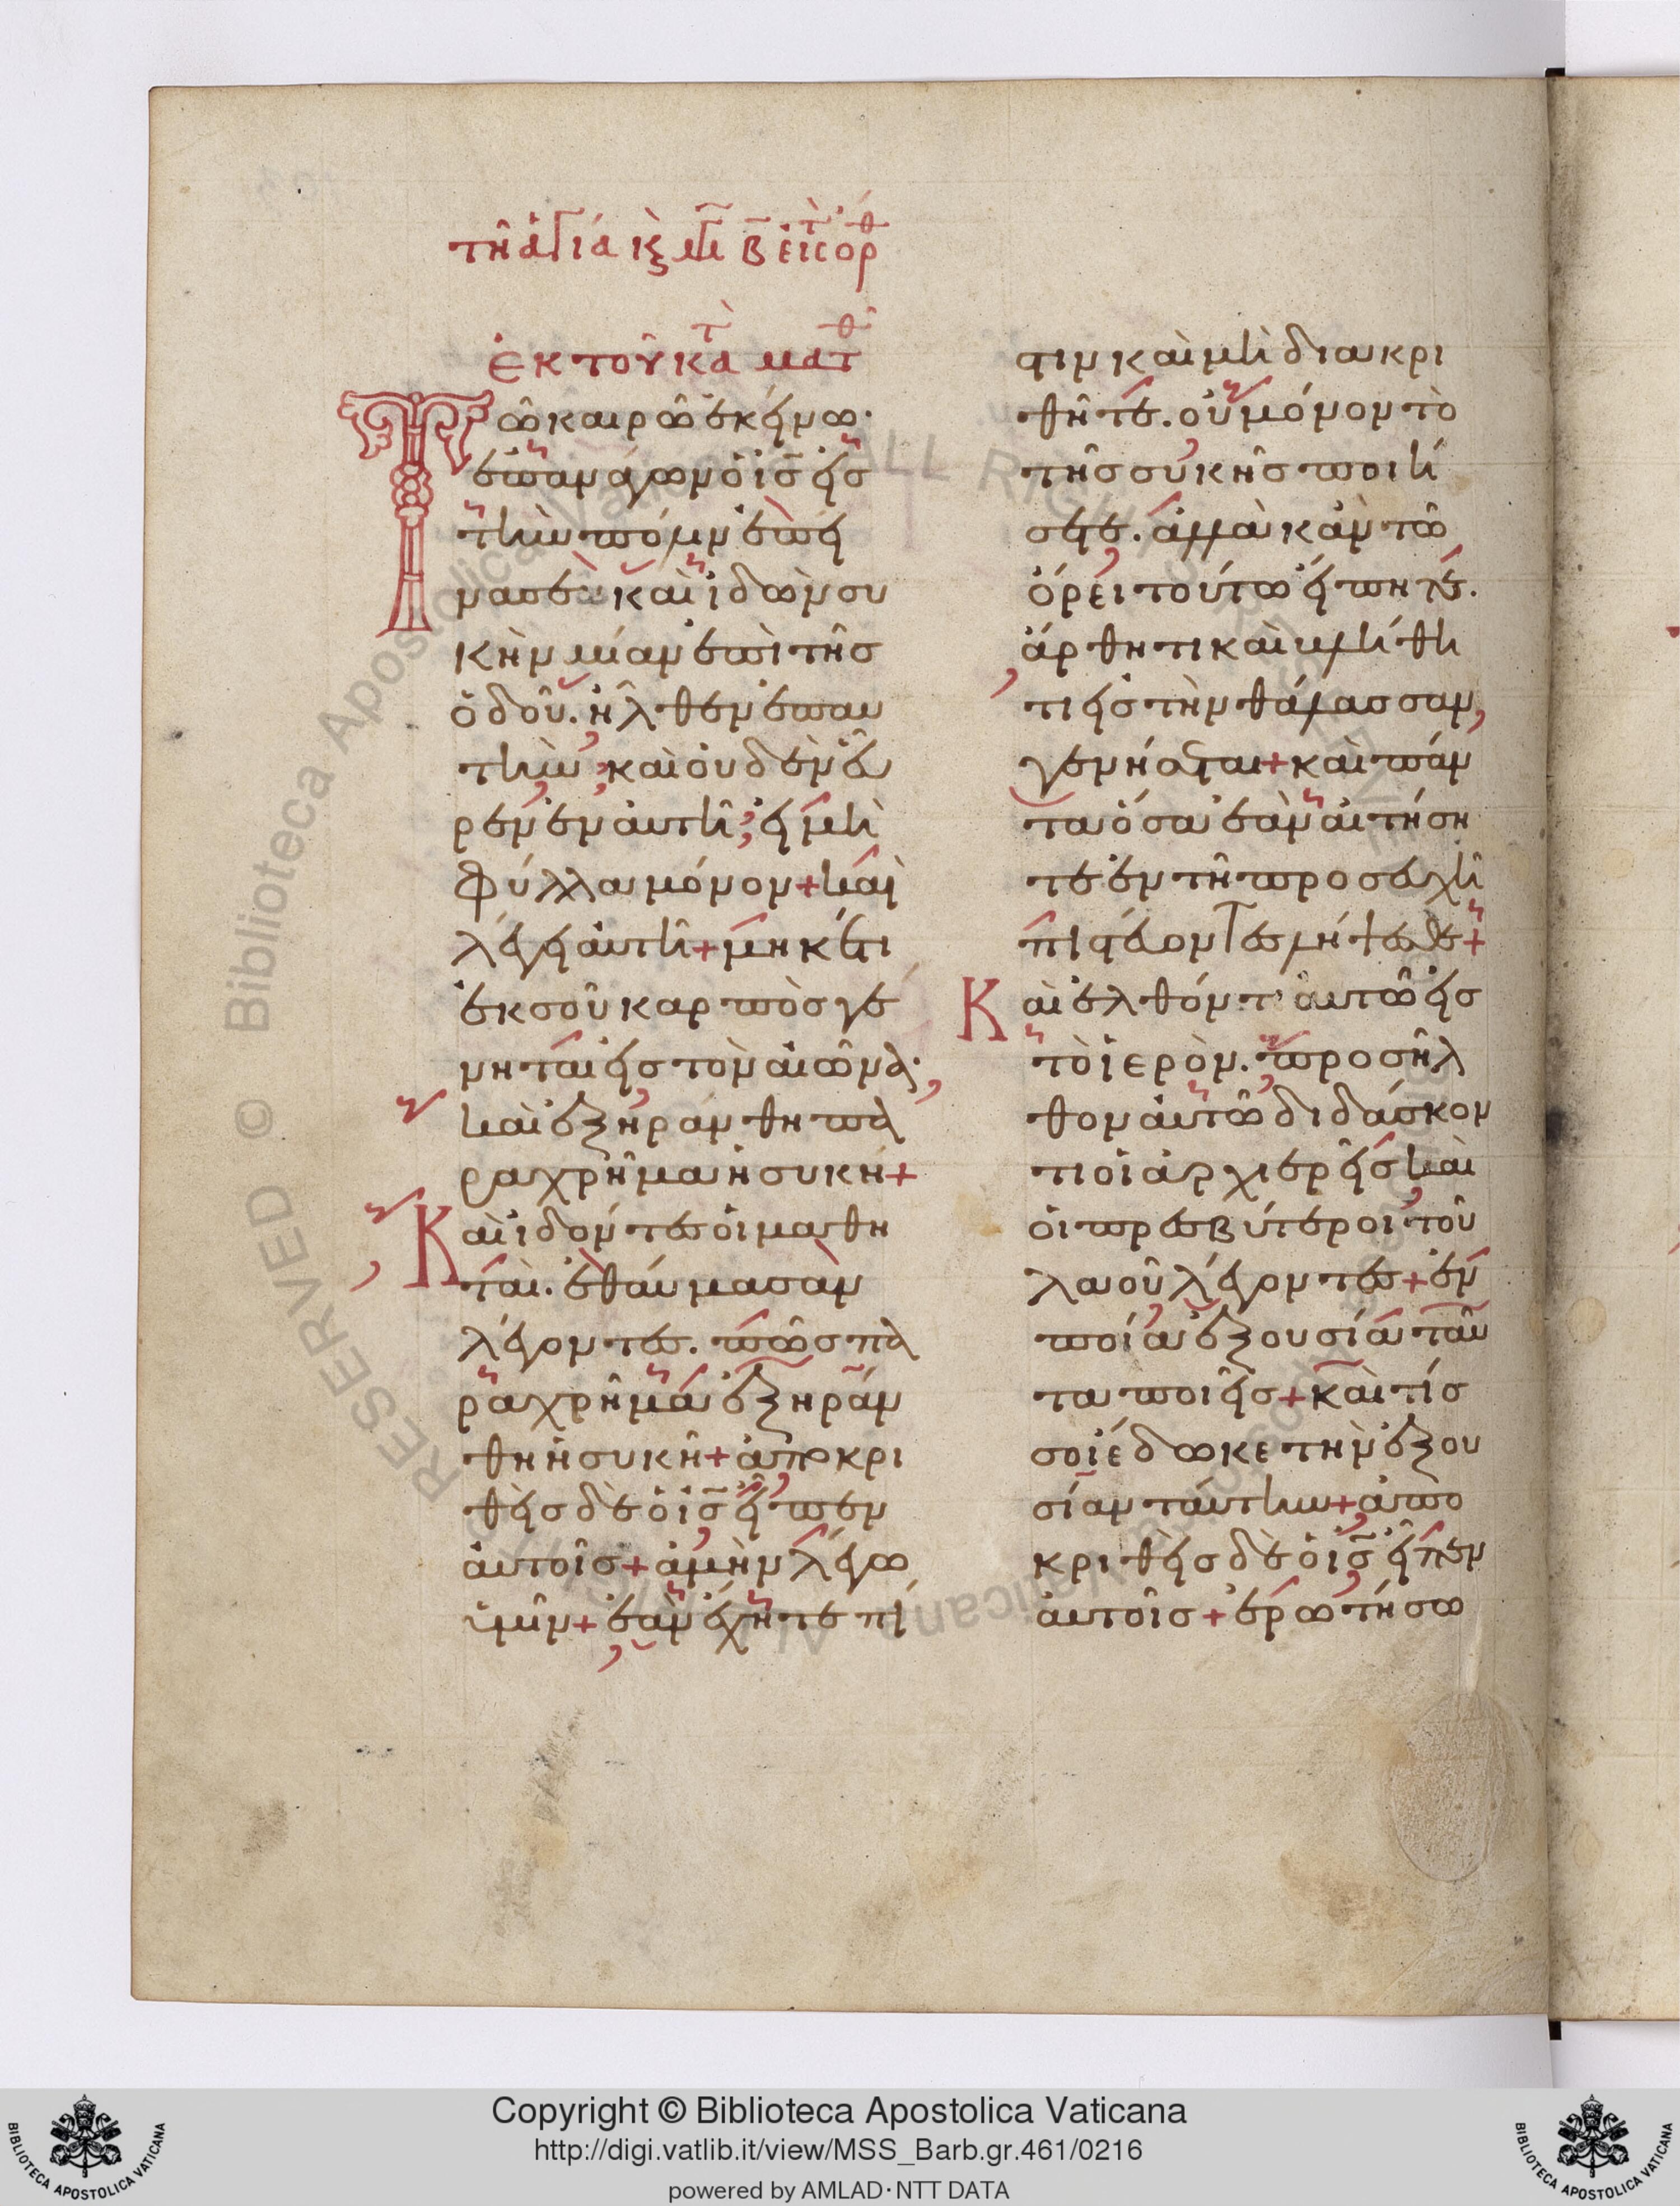 τῆ ἁγία κ̣ μγ Β εἰς τ ὀρθ
ἐκ τοῦ κατὰ ματθ
Τῶ καιρῶ ἐκείνω·
ἐπανάγων ὁ ις εἰς
τὴν πόλιν ἐπεί
νασεν καὶ ἰδὼν συ
κὴν μίαν ἐπὶ τῆς
ὁδοῦ. ἦλθεν ἐπ αυ
τὴν, καὶ οὐδὲν εὗ
ρεν ἐν αὐτῆ, εἰ μὴ
φύλλα μόνον+ καὶ
λέγει αὐτῆ+ μηκέτι
ἐκ σοῦ καρπὸς γέ
νηται εἰς τὸν αἰῶνα·
καὶ ἐξηράνθη πα
ραχρῆμα ἡ συκῆ+
Καὶ ἰδόντες οἱ μαθη
ταὶ. ἐθαύμασαν
λέγοντες. πῶς πα
ραχρῆμα ἐξηράν
θη ἡ συκῆ+ ἀποκρι
θεὶς δὲ ὁ ις εἶπεν
αὐτοῖς+ ἀμὴν λέγω
ὑμῖν+ ἐὰν ἔχητε πί
στιν καὶ μὴ διακρι
θῆτε. οὐ μόνον τὸ
τῆς συκῆς ποιή
σετε. ἀλλὰ κἂν τῶ
ὄρει τούτω εἴπητε.
ἄρθητι καὶ βλήθη
τι εἰς τὴν θάλασσαν,
γενήσεται+ καὶ πάν
τα ὅσα ἐὰν αἰτήση
τε ἐν τῆ προσευχῆ
πιστεύοντες λήψεσθε+
Καὶ ἐλθόντι αὐτῶ εἰς
τὸ ἱερὸν. προσῆλ
θον αὐτῶ διδάσκον
τι οἱ ἀρχιερεῖς καὶ
οἱ πρεσβύτεροι τοῦ
λαοῦ λέγοντες+ ἐν
ποία ἐξουσία ταῦ
τα ποιεῖς+ καὶ τίς
σοι έδωκε τὴν ἐξου
σίαν ταύτην+ ἀπο
κριθεὶς δὲ ὁ ις εἶπεν
αὐτοῖς+ ἐρωτήσω
Copyright © Biblioteca Apostolica Vaticana
http://digi.vatlib.it/view/MSS_Barb.gr.461/0216
powered by AMLAD·NTT DATA
BIBLIOTECA APOSTOLICA VATICANA
BIBLIOTECA APOSTOLICA VATICANA